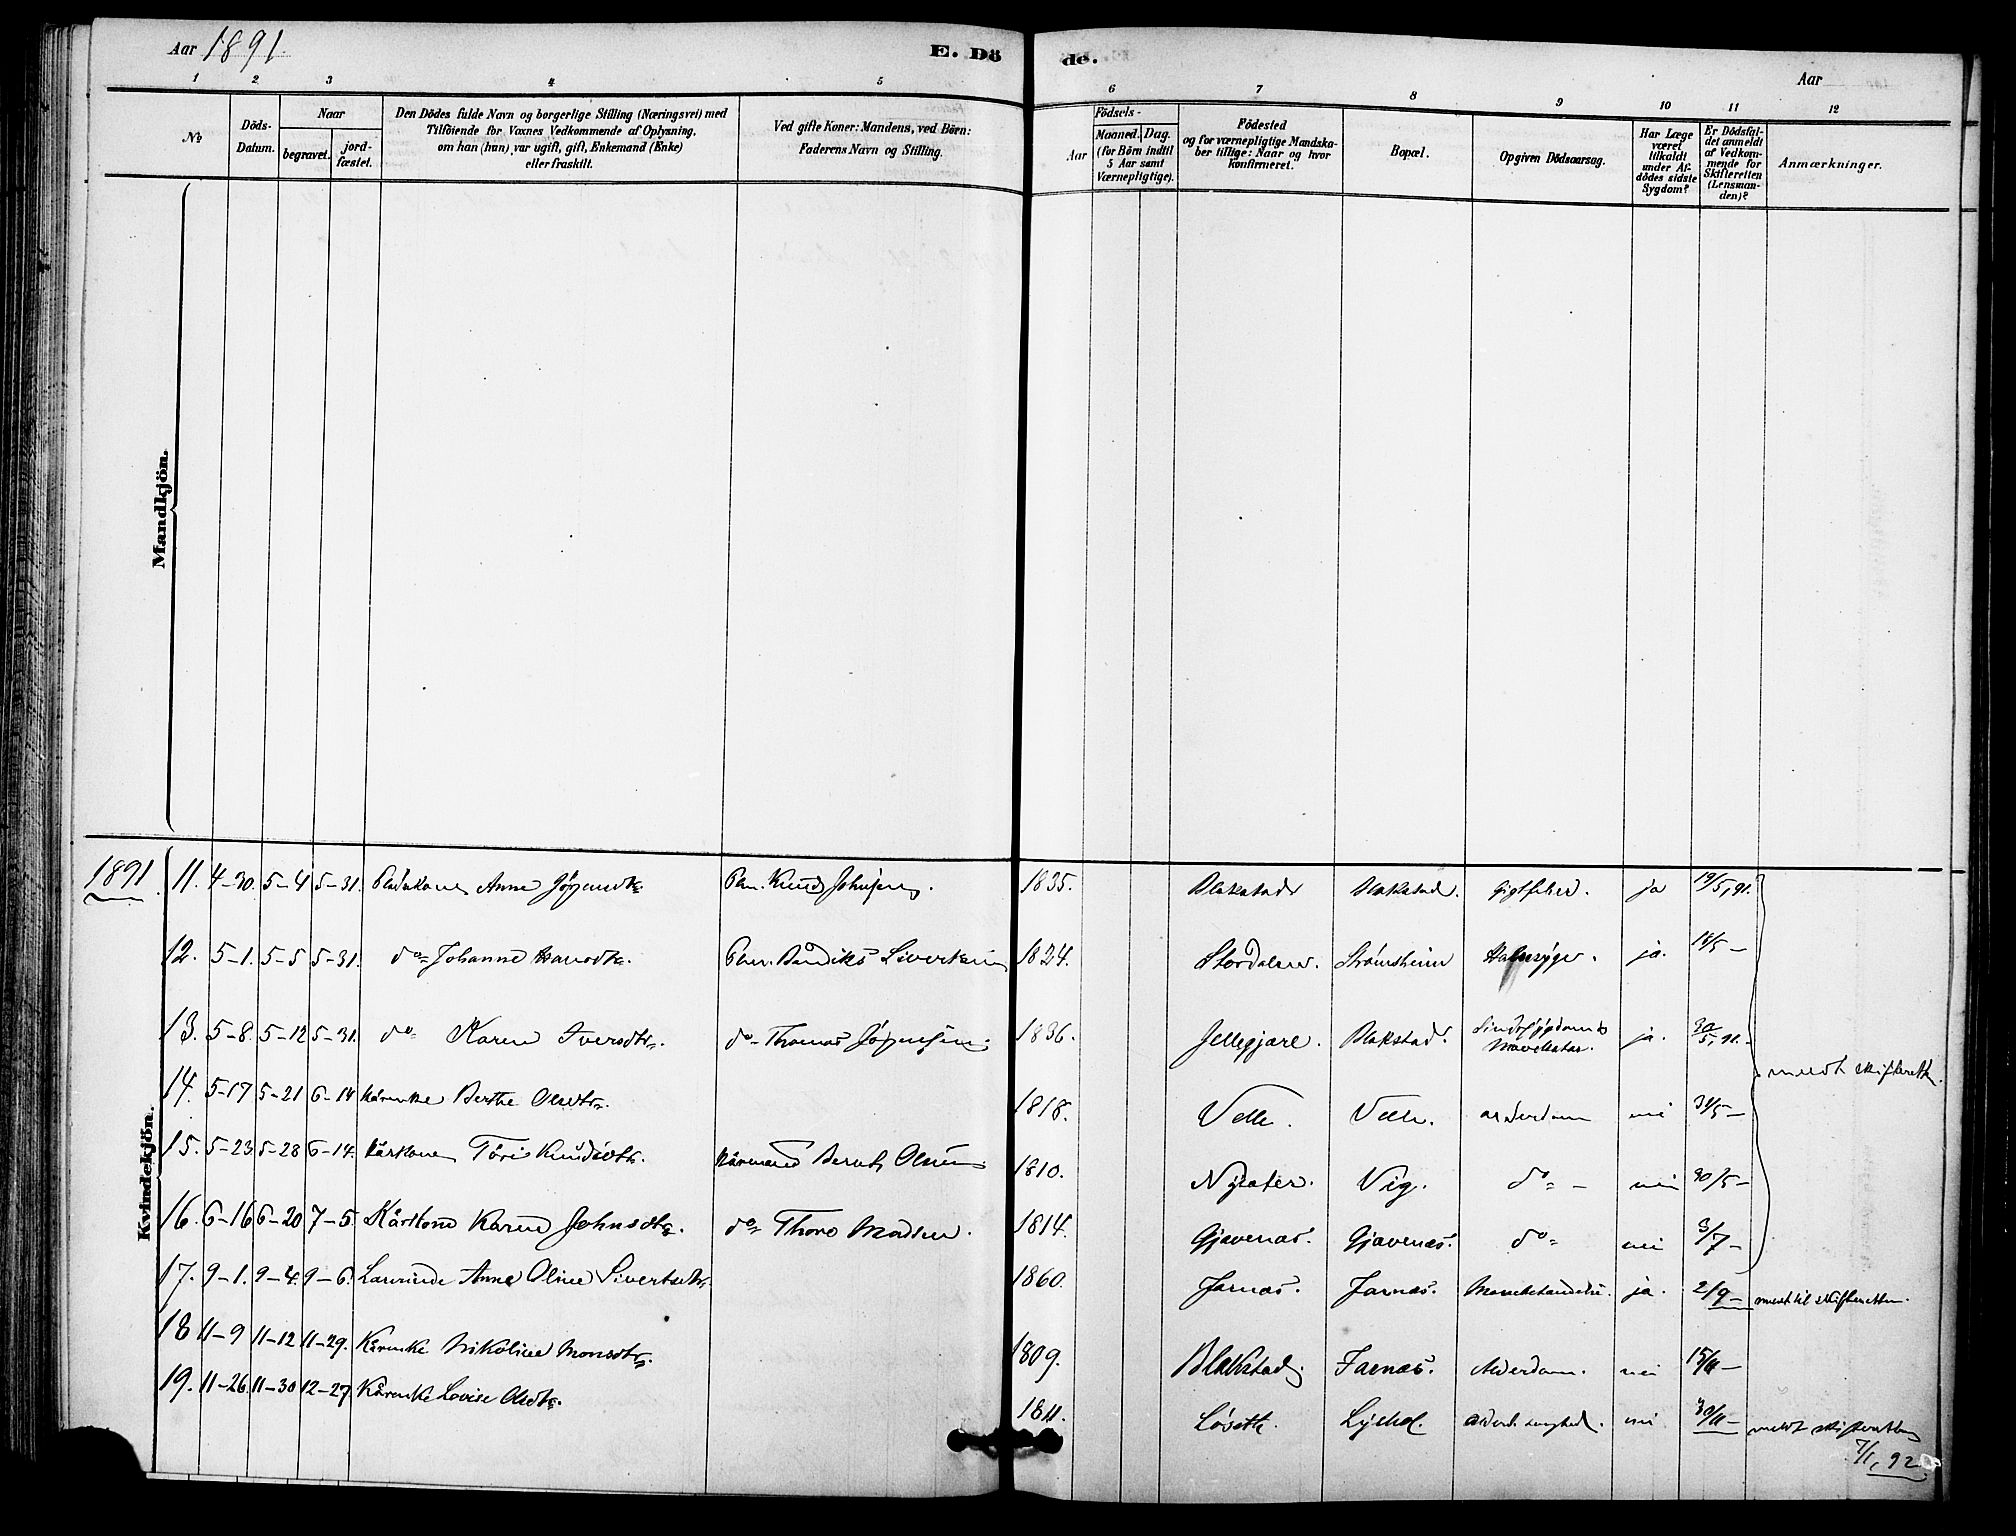 Aar 1891.
E. Dö
de.
Aar
1 2 3 4 5
6 7 8 9 10 11 12
No
Döds-
Datum.
Naar
begravet.
jord-
fæstet.
Den Dödes fulde Navn og borgerlige Stilling (Næringsvei) med
Tilföiende for Voxnes Vedkommende af Oplysning,
om han (hun) var ugift, gift, Enkemand (Enke)
eller fraskilt.
Ved gifte Koner: Mandens, ved Börn:
Faderens Navn og Stilling.
Födsels-
Aar
Maaned. Dag.
(for Börn indtil
5 Aar samt
Værnepligtige).
Födested
og for værnepligtige Mandska-
ber tillige: Naar og hvor
konfirmeret.
Bopæl.
Opgiven Dödsaarsag.
Har Læge
været
tilkaldt
under Af-
dödes sidste
Sygdom?
Er Dödsfal-
det anmeldt
af Vedkom-
mende for
Skifteretten
(Lensman-
den)?
Anmærkninger.
Mandkjön.
Kvindekjön.
1891 11. 4-30. 5-4 5-31. Anne 1835. Blakstad Blakstad. Gigtfeber. ja 19/5, 91.
12. 5-1. 5-5 5-31. do Johanne 1824. Stordalen. Strømsheim ja. 19/5 -
13. 5-8. 5-12 5-31. do Karen Iversdtr. do Thomas Jørgensen. 1836. Jellegjære. Blakstad. ja. 30/5, 91.
14. 5-17 5-21 6-14 Kårenke Berthe Olsdtr. 1818. Velle. Velle. alderdom nei 31/5 -
15. 5-23 5-28 6-14. Kårkone Knudsdtr. Kårmand Bernt Olsen 1810. Vig. do - nei 30/5 -
16. 6-16 6-20 7-5 Kårkone Karen Johnsdtr. do Thore Madsen. 1814. Gjævenæs. Gjævenæs. do nei 3/7 -
17. 9-1. 9-4. 9-6. Anne Oline Sivertsdtr. 1860. Farnæs. Farnæs. ja. 2/9 -
18 11-9 11-12 11-29. Kårenke Nikoline Monsdtr. 1809. Blakstad Farnæs. Alderdom. nei 15/11 -
19. 11-26. 11-30 12-27 Kårenke Lovise Olsdtr. 1811. Løseth. nei 30/11 -
meldt skifteretten
7/1, 92